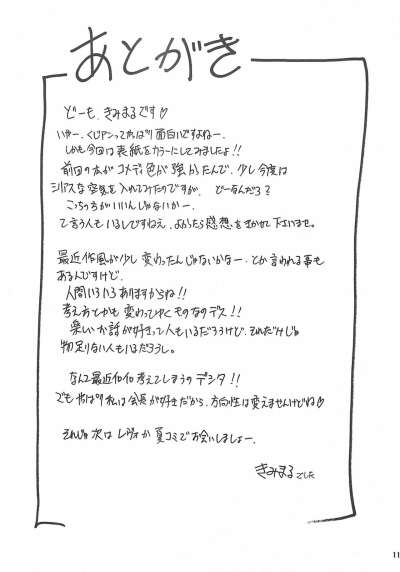 あとがき
どーも、きみまるです♡
いやー、くじアンってやっぱり面白いですよねー、
しかも今回は表紙をカラーにしてみましたよ!!
前回の本がコメディ色が強かったんで、少し今度は
シリアスな空気を入れてみたのですが、どーなんだろ?
こっちの方がいいんじゃないかー、
て言う人もいるしですねえ、よかったら感想をきかせて下さいませ。
最近作風が少し変わったんじゃないかなー、とか言われる事も
あるんですけど、
人間いろいろありますからね!!
考え方とかも変わってゆくものなのデス!!
楽しいお話が好きって人もいるだろうけど、それだけじゃ
物足りない人もいるだろうし。
なんて最近色々考えてしまうのデシタ!!
でもやっぱり私は会長が好きだから、方向性は変えませんけどね♡
それじゃ次はレヴォか夏コミでお会いしましょー、
きみまるでした
11